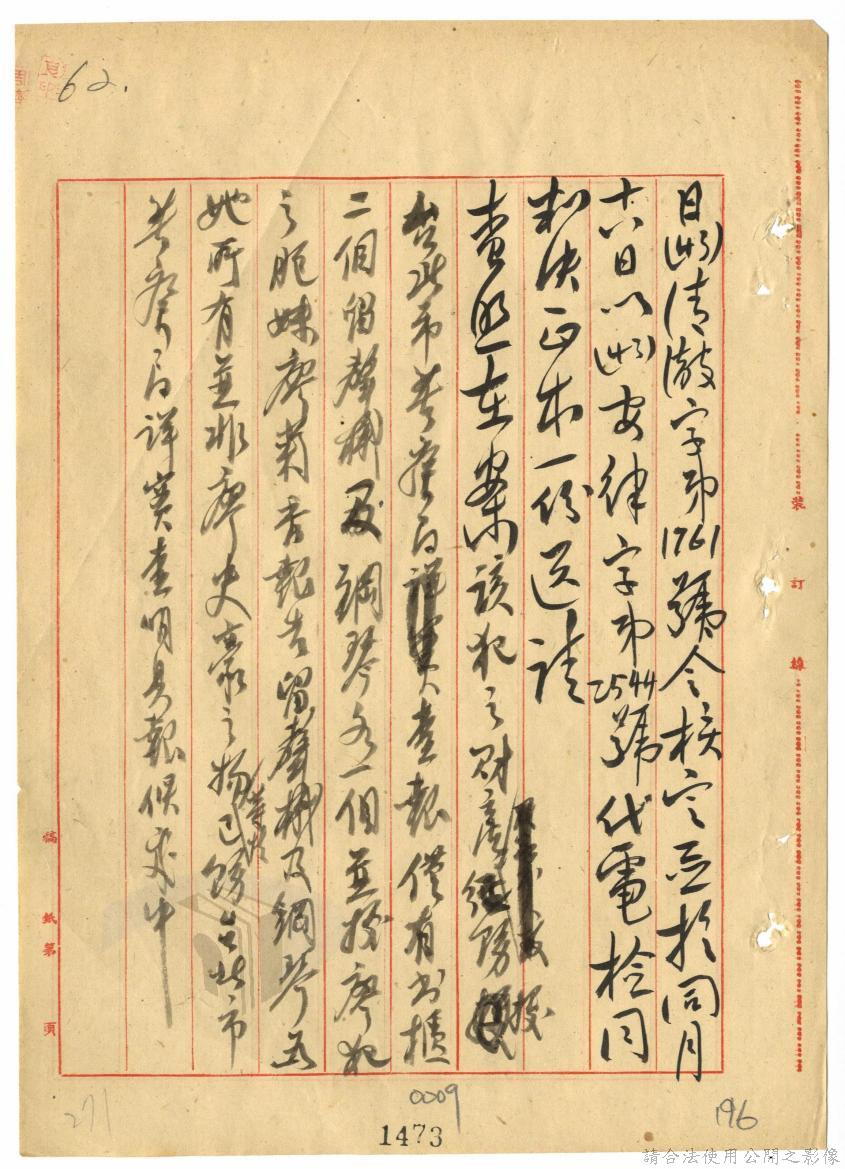 62.
日(43)清澈字第1761號令核定並於同月
十六日以(43)安律字第2544號代電檢同
判決正本一份送請
查照在案該犯之財產經飭據
台北市警察局詳實查報僅有書櫃
二個留聲機及鋼琴各一個並據廖犯
之胞妹廖菊香報告留聲機及鋼琴為
她所有並非廖史豪之物已飭台北市
警察局詳實查明具報候處中
裝
訂
線
稿
紙
第
頁
271
0009
196
1473
請合法使用公開之影像